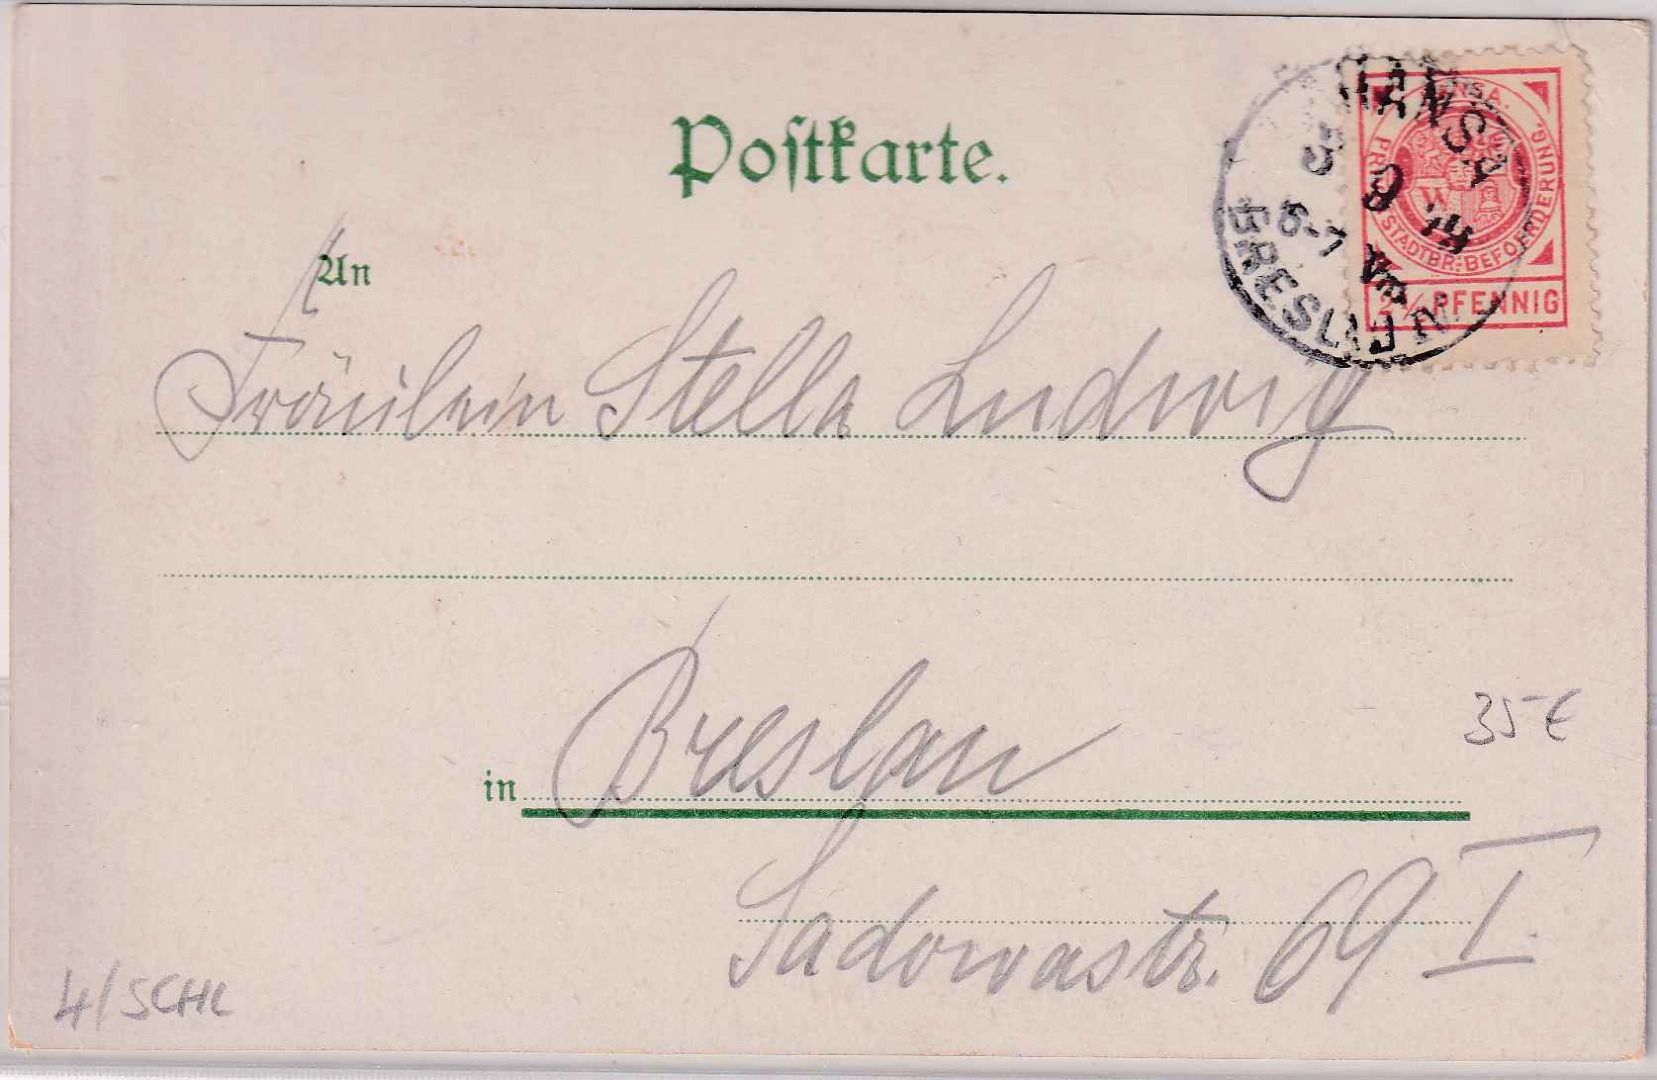 Postkarte.
HANSA
5 9
6-7 Vm
BRESLAU
HANSA.
PRIVAT-STADTBR:BEFOERDERUNG.
W
2½ PFENNIG
An
Fräulein Stella Ludwig
in Breslau
35 €
Sadowastr. 69 I.
4/SCHL